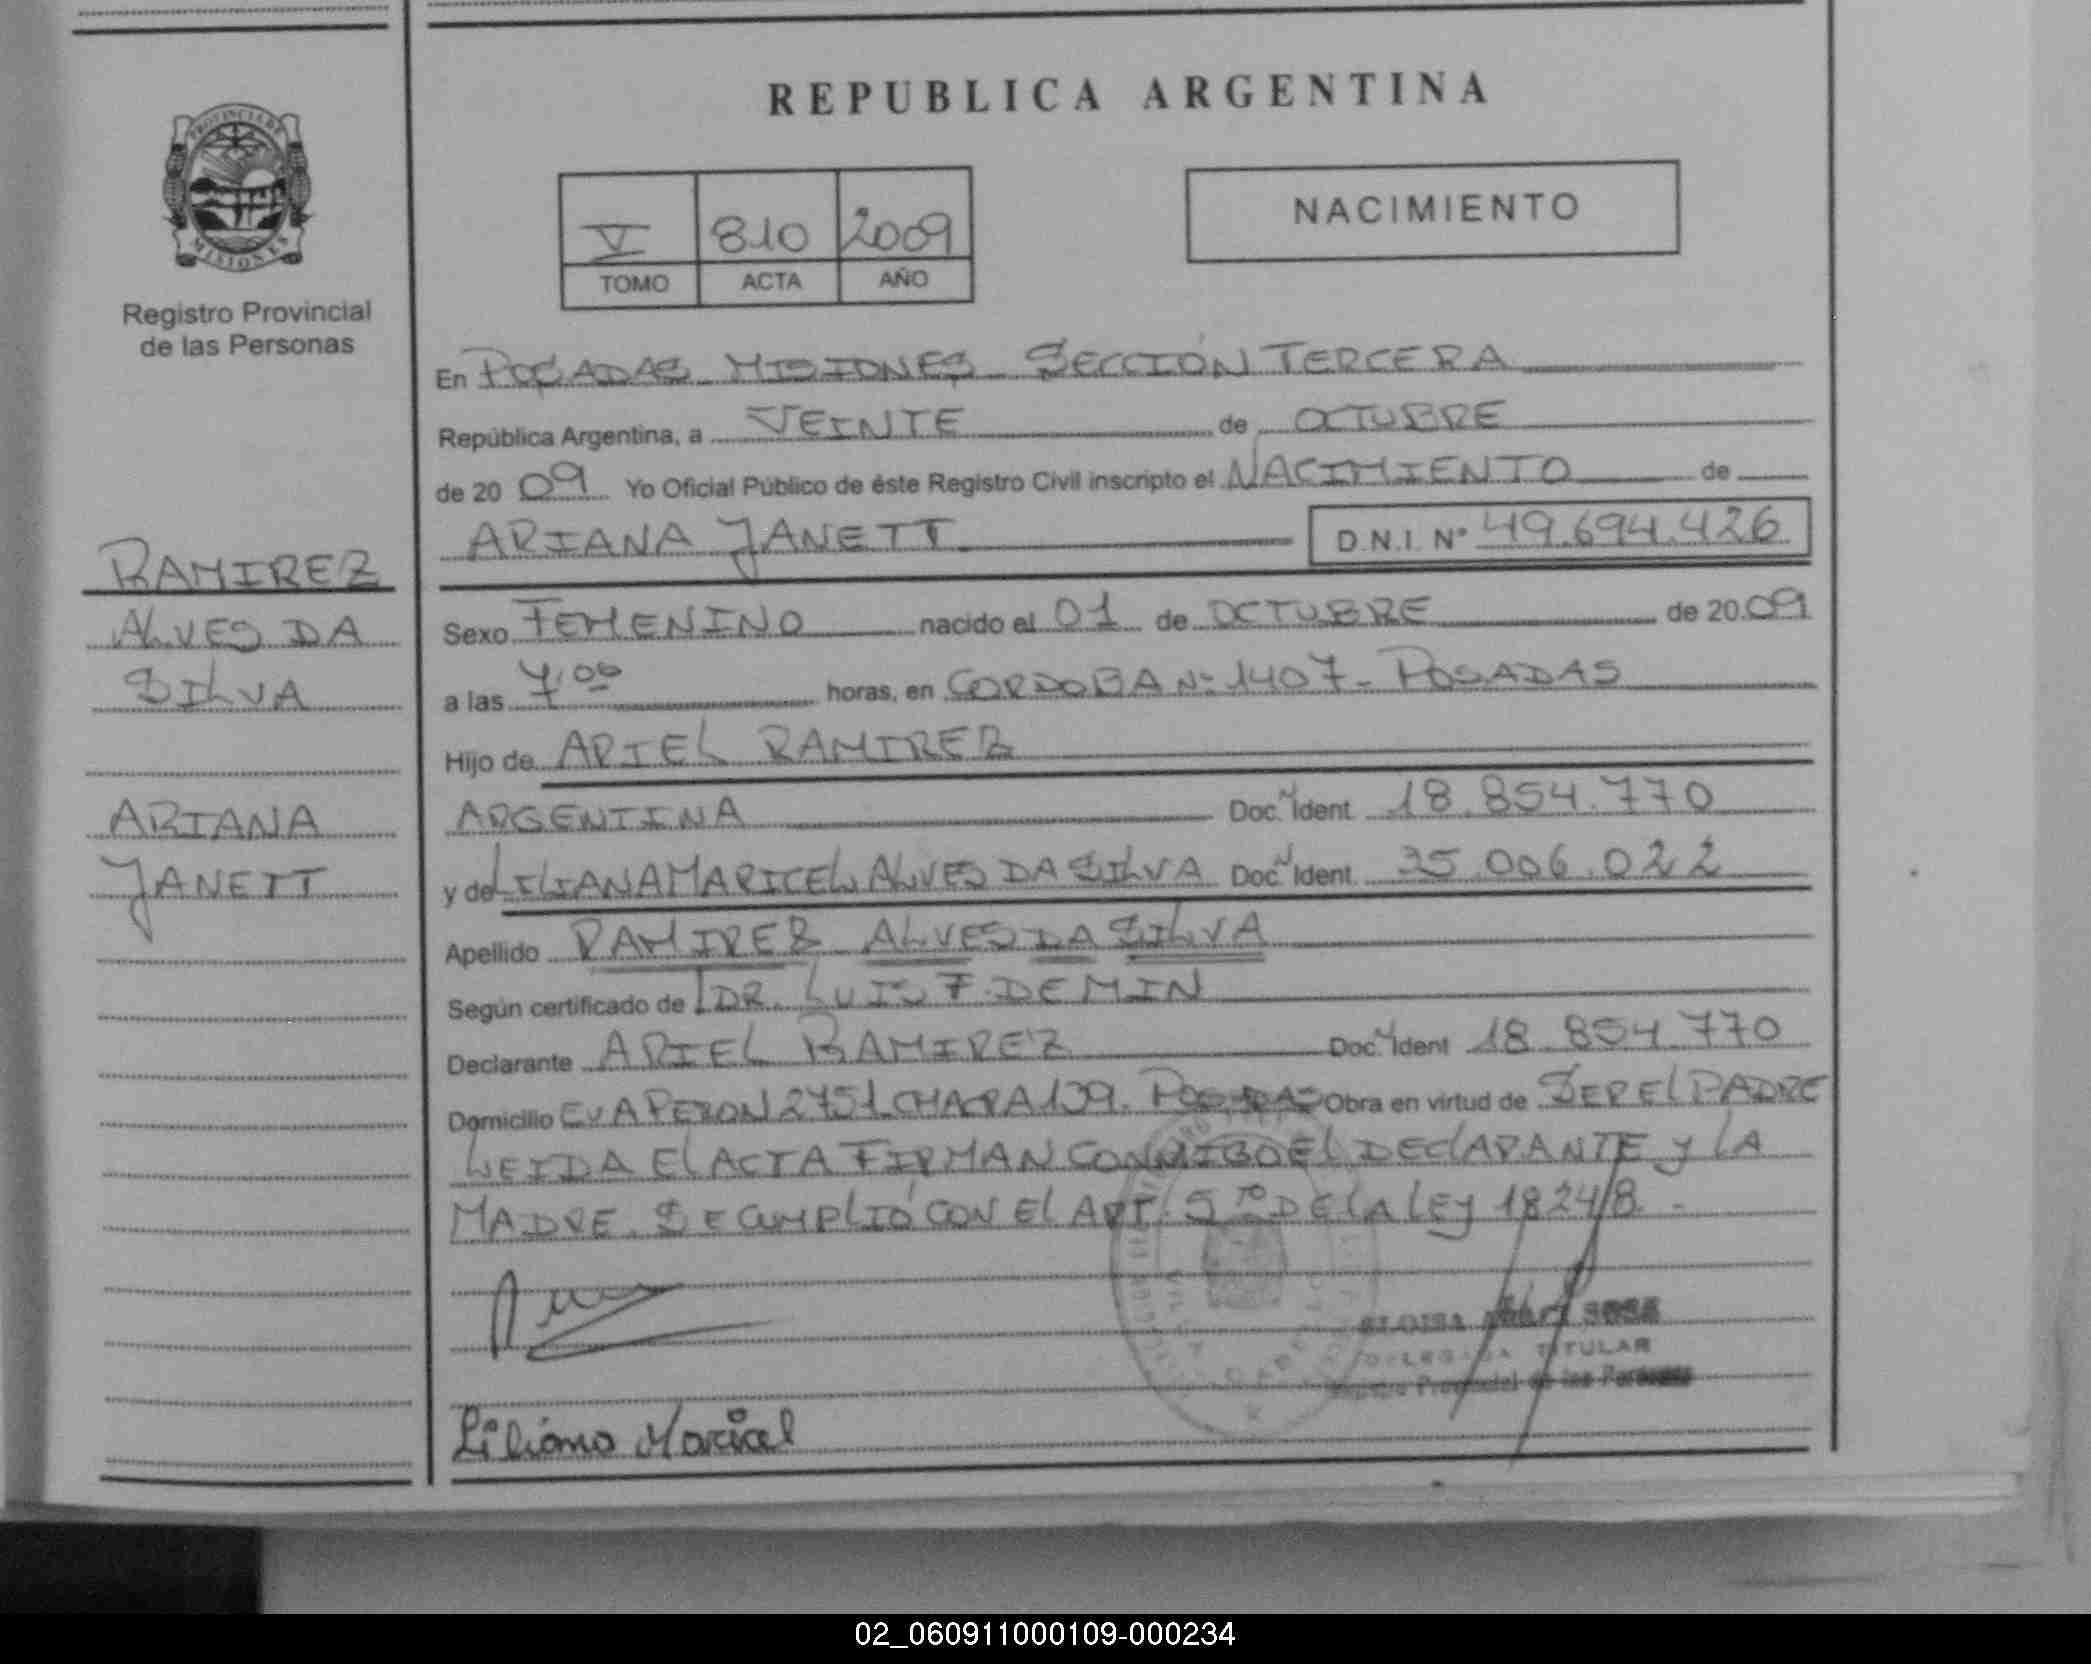 REPUBLICA ARGENTINA
PROVINCIA DE
MISIONES
Registro Provincial
de las Personas
V 810 2009
TOMO ACTA AÑO
NACIMIENTO
En POSADAS MISIONES SECCIÓN TERCERA
República Argentina, a VEINTE de OCTUBRE
de 20 09 Yo Oficial Público de éste Registro Civil inscripto el NACIMIENTO de
ARIANA JANETT D.N.I. Nº 49.694.426
RAMIREZ
ALVES DA
SILVA
ARIANA
JANETT
Sexo FEMENINO nacido el 01 de OCTUBRE de 20 09
a las 7,00 horas, en CORDOBA Nº 1407- POSADAS
Hijo de ARIEL RAMIREZ
ARGENTINA Doc. N Ident 18.854.770
y de LILIANA MARICEL ALVES DA SILVA Doc. N Ident 35.006.022
Apellido RAMIREZ ALVES DA SILVA
Según certificado de DR. LUIS F. DEMIN
Declarante ARIEL RAMIREZ Doc. N Ident 18.854.770
Domicilio EVA PERON 2751 CHACRA 139. POSADAS Obra en virtud de SER EL PADRE
LEIDA El ACTA FIRMAN CONMIGO El DEClARANTE y lA
MADRE. SE CUMPlIÓ CON El ART. 5to DE lA lEy 18248.-
DELEGADA TITULAR
Registro Provincial de las Personas
Liliana Maricel
02_060911000109-000234